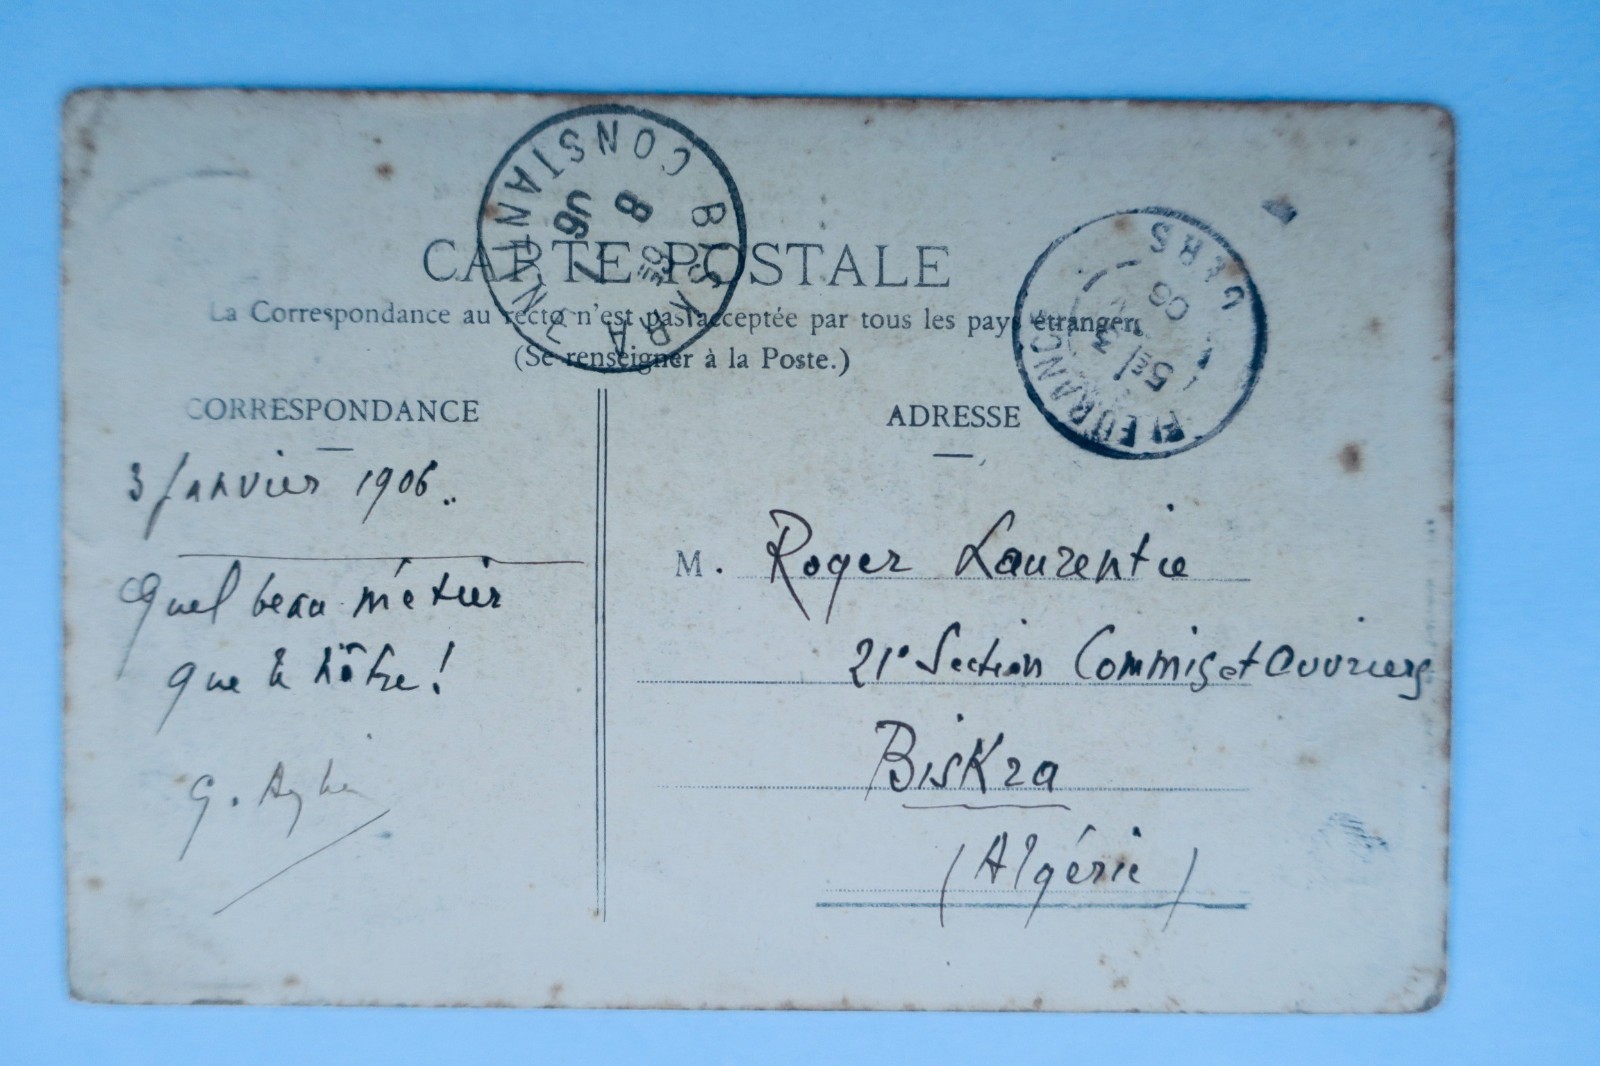 CARTE POSTALE
La Correspondance au recto n'est pas acceptée par tous les pays étrangers
(Se renseigner à la Poste.)
CORRESPONDANCE
3 Janvier 1906..
Quel beau métier
que le nôtre!
G.
ADRESSE
M. Roger Laurentie
21e Section Commis et Ouvriers
Biskra
(Algérie)
BISKRA
CONSTANTINE
8
06
FLEURANCE
GERS
5E
3
06